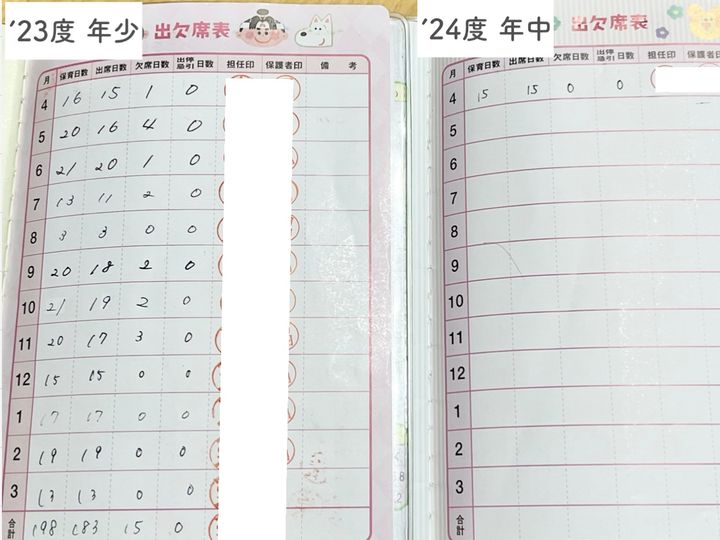 '23度 年少
出欠席表
月 保育日数 出席日数 欠席日数 出停忌引日数 担任印 保護者印 備考
4 16 15 1 0
5 20 16 4 0
6 21 20 1 0
7 13 11 2 0
8 3 3 0 0
9 20 18 2 0
10 21 19 2 0
11 20 17 3 0
12 15 15 0 0
1 17 17 0 0
2 19 19 0 0
3 13 13 0 0
合計 198 183 15 0
'24度 年中
出欠席表
月 保育日数 出席日数 欠席日数 出停忌引日数 担任印 保護者印
4 15 15 0 0
5
6
7
8
9
10
11
12
1
2
3
合計